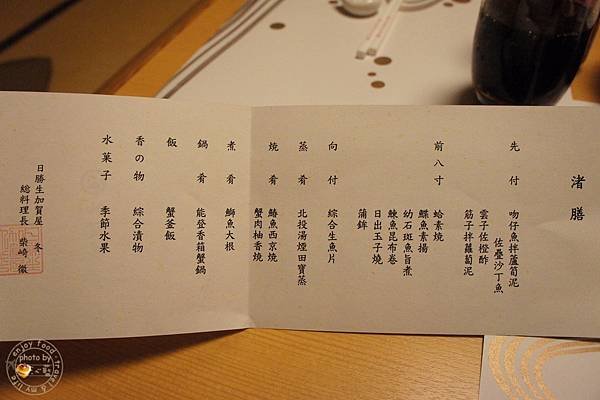 渚膳
先付 吻仔魚拌蘆筍泥
佐疊沙丁魚
雲子佐橙酢
筋子拌蘿蔔泥
前八寸 蛤素燒
鰈魚素揚
幼石斑魚旨煮
鰊魚昆布卷
日出玉子燒
蒲鉾
向付 綜合生魚片
蒸肴 北投湯煙田寶蒸
燒肴 鰆魚西京燒
蟹肉柚香燒
煮肴 鰤魚大根
鍋肴 能登香箱蟹鍋
飯 蟹釜飯
香の物 綜合漬物
水菓子 季節水果
日勝生加賀屋 冬
総料理長 柴崎 徹
enjoy food · travel & my life
photo by